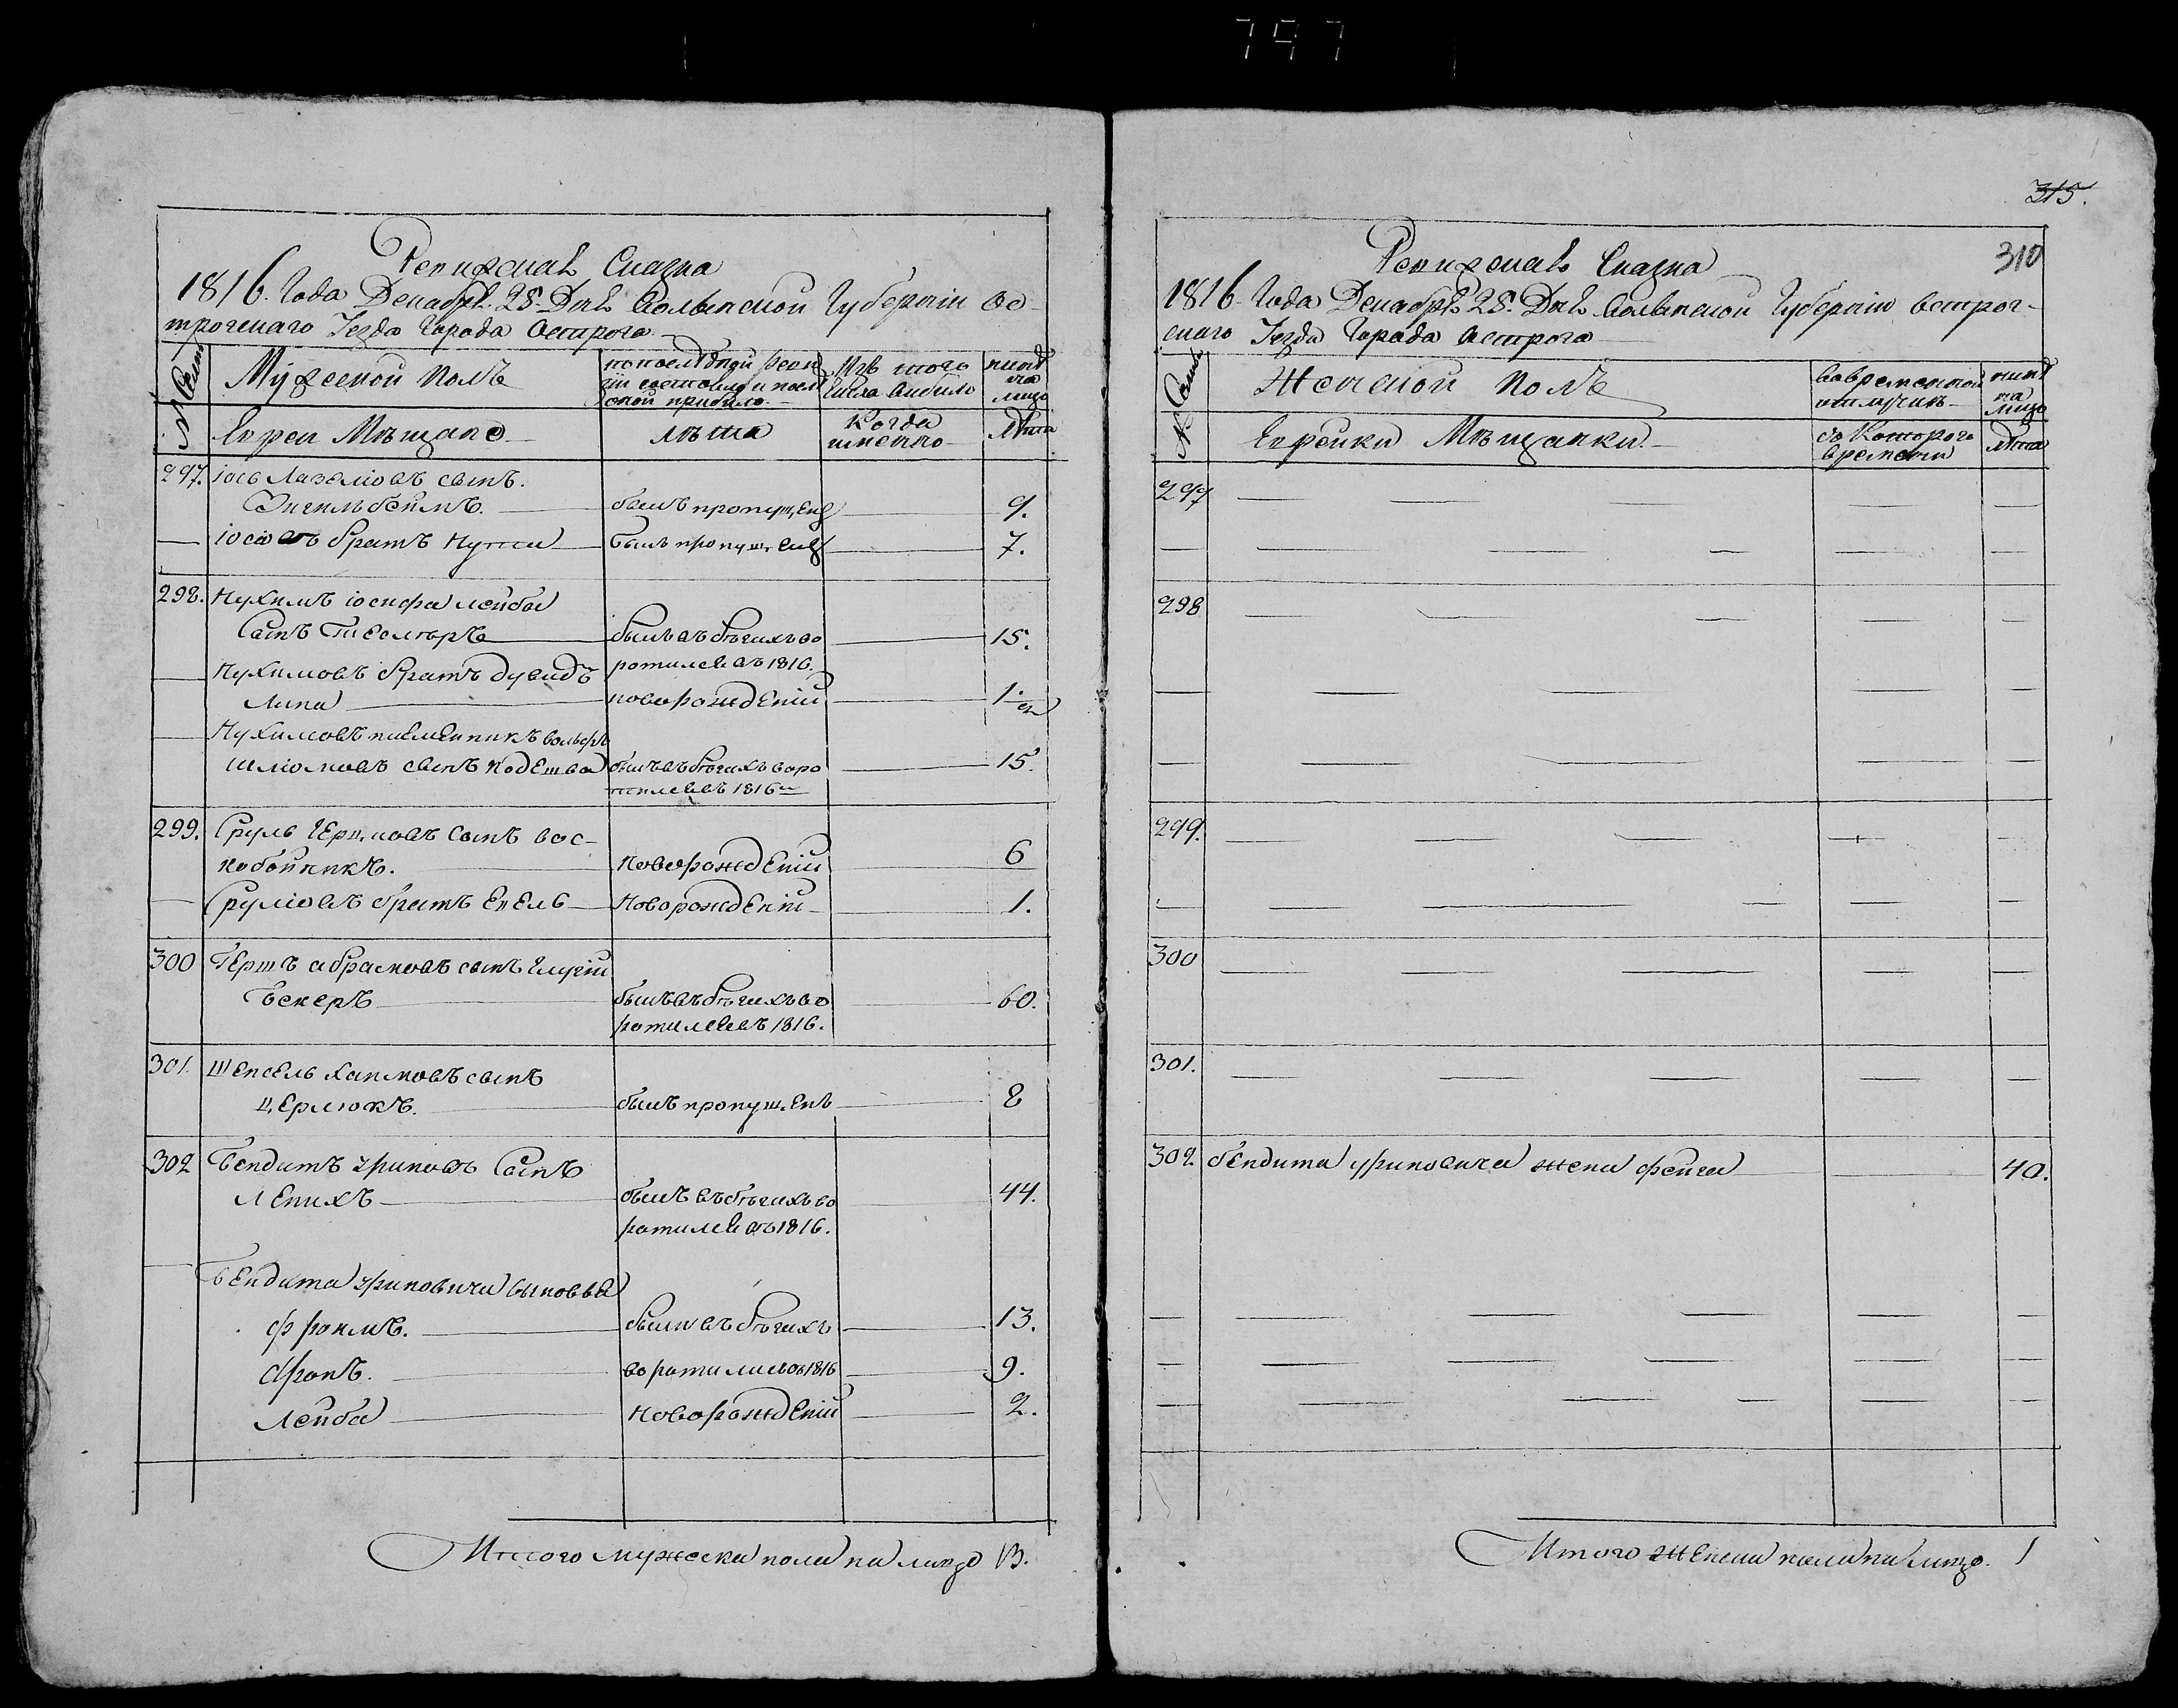 797
Ревижская Сказка
1816. Года Декабря 28. Дня Волынской Губернiи Ос-
трогскаго Уезда Города Острога
№ Семей
Мужеской полъ
по последней реви
зiи состояло и посл
оной прибыло
Изъ того
числа выбыло
ныне
на
лицо
Евреи Мещане
лета
Когда
именно
Лета
297. iось Лазелiовъ сынъ
Зигельбеймъ.
былъ пропущенъ
9.
iосiовъ братъ Нутa
былъ пропущенъ
7.
298. Нухимъ iосифа лейба
Сынъ
былъ въ бегахъ во
ротился въ 1816.
15.
Нухимовъ братъ дувидъ
Липа
новорожденiй
1.
Нухимовъ племенникъ вольфъ
шлiомовъ сынъ подешва
былъ въ бегахъ воро
тился въ 1816
15.
299. Сруль Герцковъ Сынъ вос-
кобойникъ.
новорожденiй
6
Срулiовъ братъ
Новорожденiй
1.
300 Гершъ абрамовъ сынъ
былъ въ бегахъ во
ротился въ 1816.
60.
301. Шепсель хаимовъ сынъ
Церлюкъ.
былъ пропущенъ
8
302 Бендитъ уриновъ Сынъ
Лепихъ
былъ въ бегахъ во
ротился въ 1816.
44.
Бендита уриновича сыновья
Фроимъ.
были въ бегахъ
13.
Аронъ.
воротились въ 1816
9.
Лейба
Новорожденiй
2.
Итого мужеска пола на лицо 13.
315.
310
Ревижская Сказка
1816. Года Декабря 28. Дня Волынской Губернiи Острог-
скаго Уезда Города Острога
№ Семей
Женской полъ
во временной
отлучке
ныне
на
лицо
Еврейки Мещанки.
съ Котораго
времени
лета
297
298
299.
300
301.
302. бендита уриновича жена фейга
40.
Итого женска пола на лицо. 1